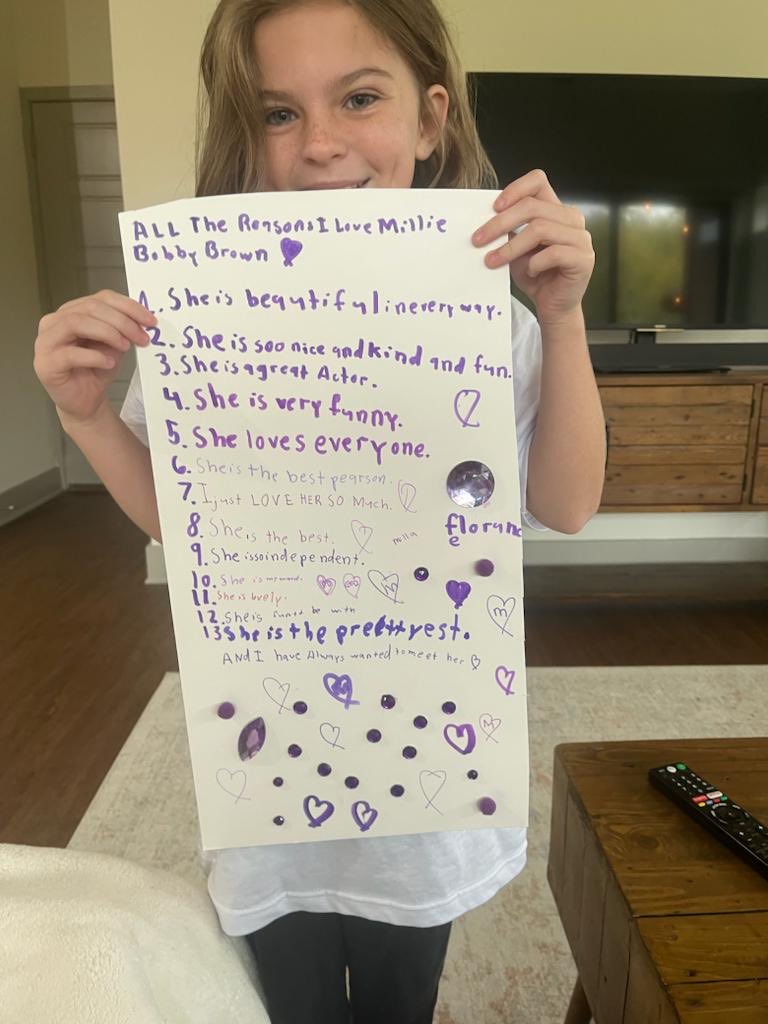 ALL The Reasons I Love Millie
Bobby Brown
1. She is beautiful in every way.
2. She is soo nice and kind and fun.
3. She is a great Actor.
4. She is very funny.
5. She loves everyone.
6. She is the best pearson.
7. I just LOVE HER SO Much.
8. She is the best.
milla
floranc
e
9. She is so independent.
10. She is my
11. She is lovely.
12. She is to be with
13 She is the prettyest.
AND I have Always wanted to meet her
m